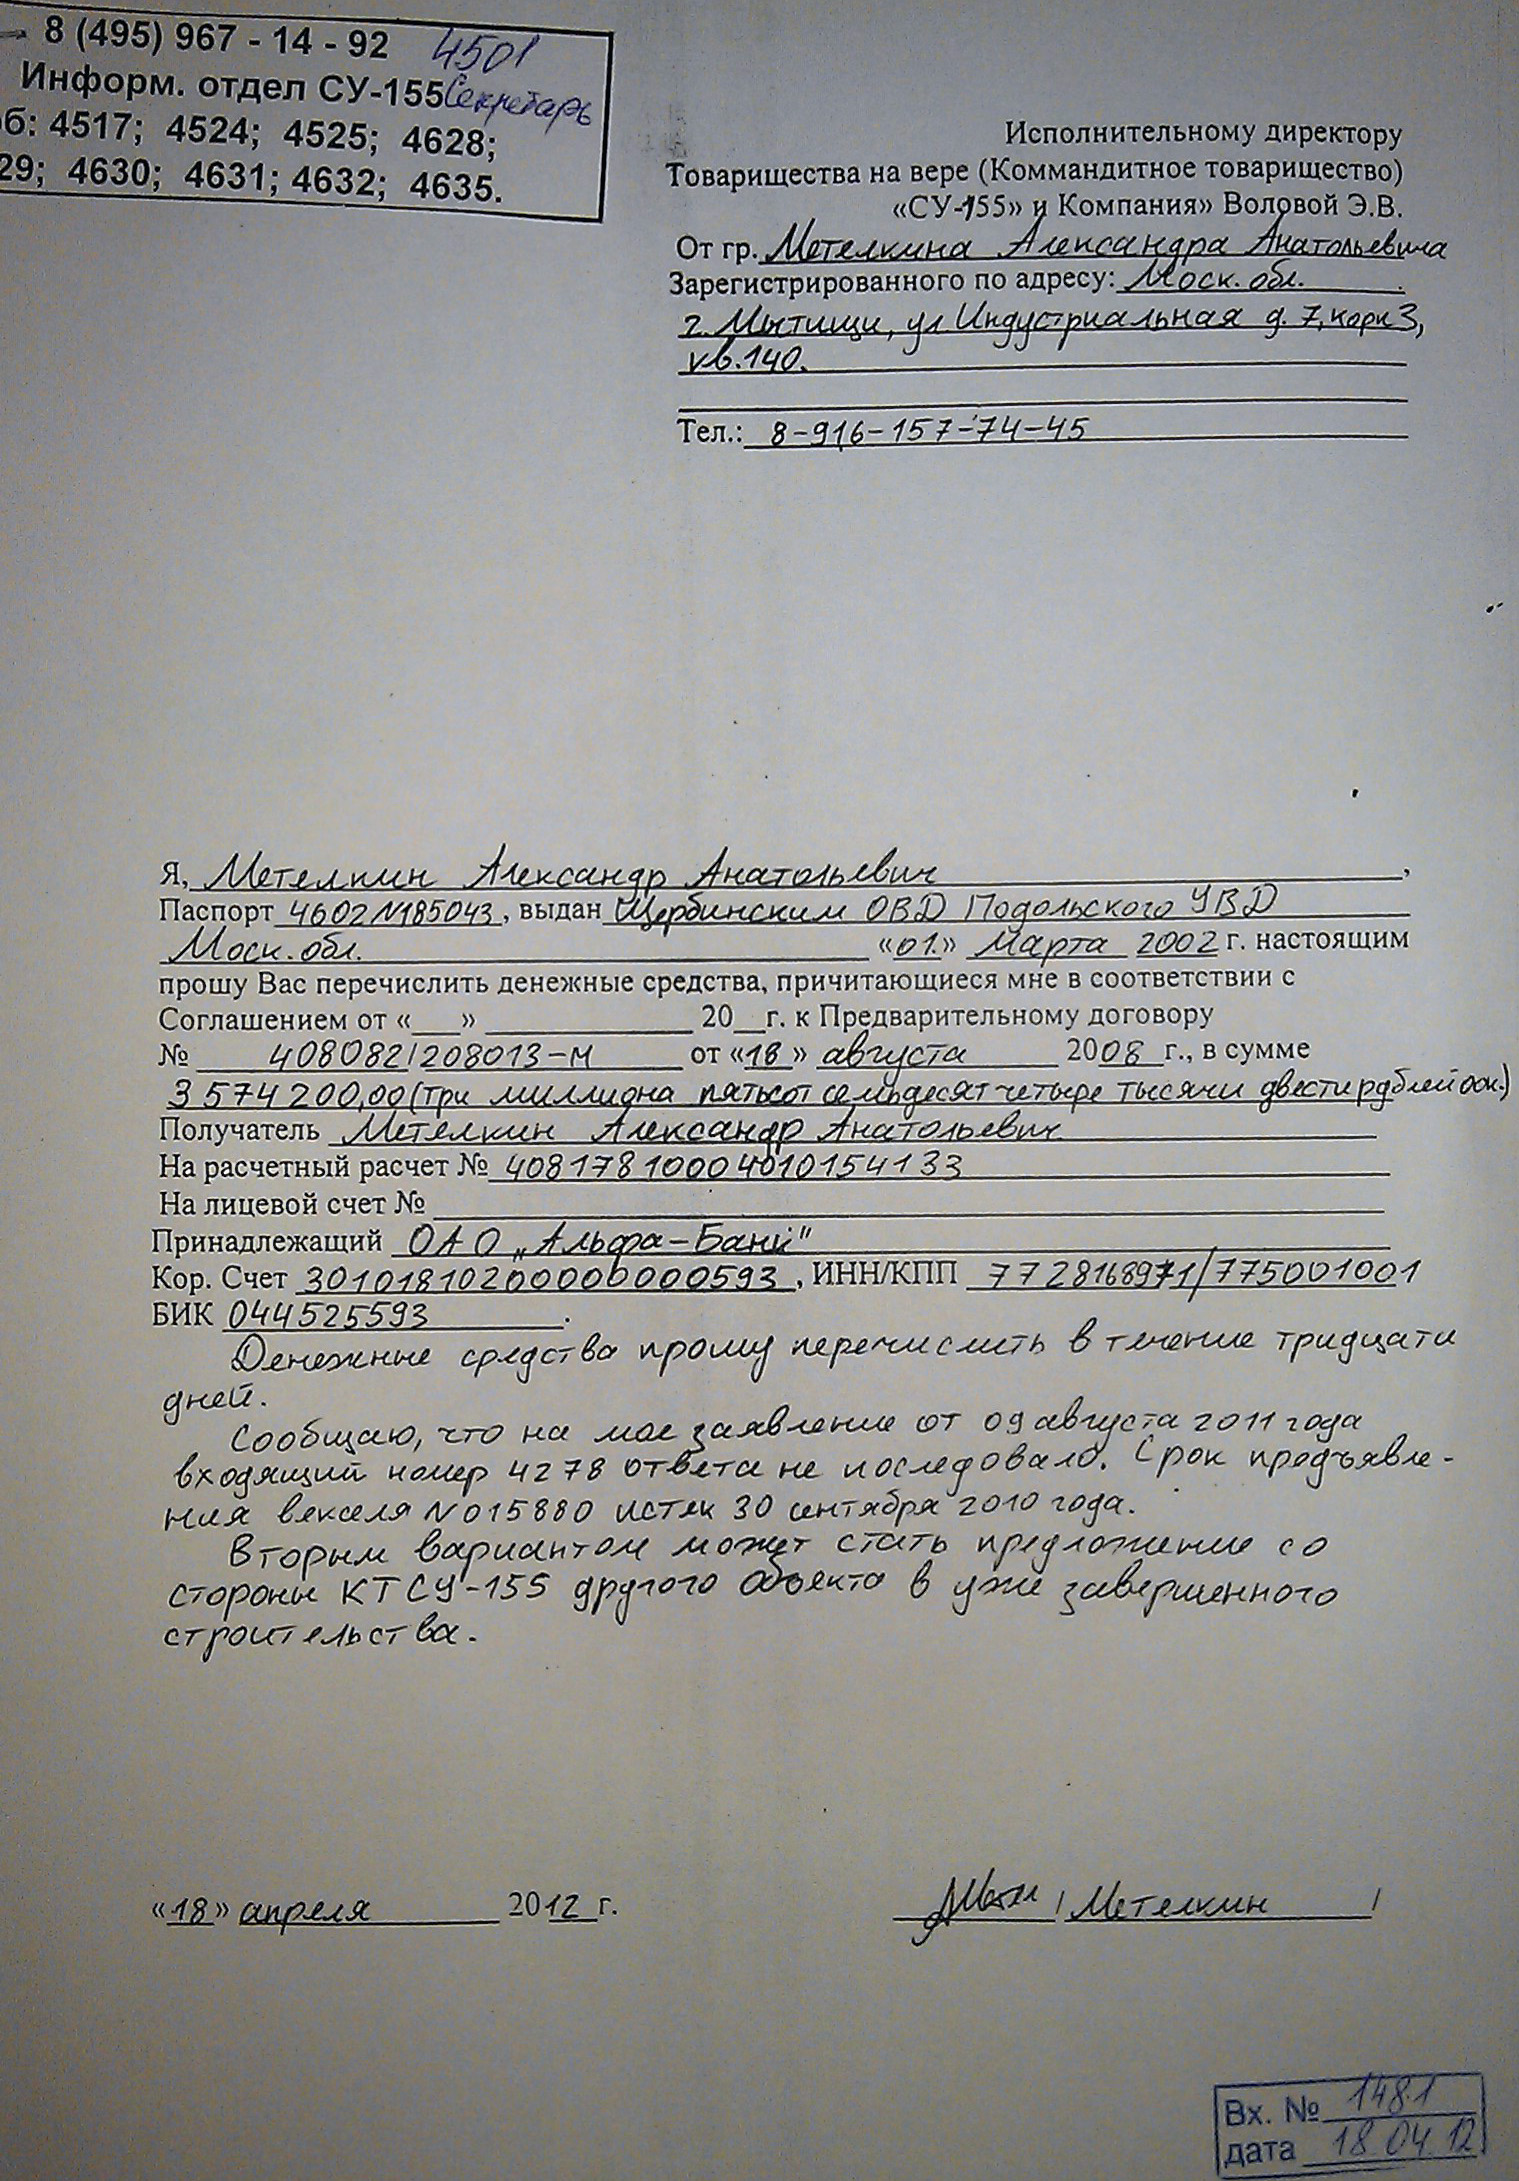 8 (495) 967 - 14 - 92 4501
Информ. отдел СУ-155 Секретарь
об: 4517; 4524; 4525; 4628;
29; 4630; 4631; 4632; 4635.
Исполнительному директору
Товарищества на вере (Коммандитное товарищество)
«СУ-155» и Компания» Воловой Э.В.
От гр. Метелкина Александра Анатольевича
Зарегистрированного по адресу: Моск. обл.
г. Мытищи, ул Индустриальная д. 7, корп 3,
кв. 140.
Тел.: 8-916-157-74-45
Я, Метелкин Александр Анатольевич,
Паспорт 4602 N185043, выдан Щербинским ОВД Подольского УВД
Моск. обл. «01.» Марта 2002 г. настоящим
прошу Вас перечислить денежные средства, причитающиеся мне в соответствии с
Соглашением от «__» ____________ 20__г. к Предварительному договору
№ 408082/208013-М от «18» августа 2008 г., в сумме
3 574 200,00 (три миллиона пятьсот семьдесят четыре тысячи двести рублей 00к.)
Получатель Метелкин Александр Анатольевич
На расчетный расчет № 40817810004010154133
На лицевой счет №
Принадлежащий ОАО „Альфа-Банк"
Кор. Счет 30101810200000000593, ИНН/КПП 7728168971/775001001
БИК 044525593.
Денежные средства прошу перечислить в течение тридцати
дней.
Сообщаю, что на мое заявление от 09 августа 2011 года
входящий номер 4278 ответа не последовало. Срок предъявле-
ния векселя N015880 истек 30 сентября 2010 года.
Вторым вариантом может стать предложение со
стороны КТ СУ-155 другого объекта в уже завершенного
строительства.
«18» апреля 2012 г. / Метелкин /
Вх. № 1481
дата 18.04.12